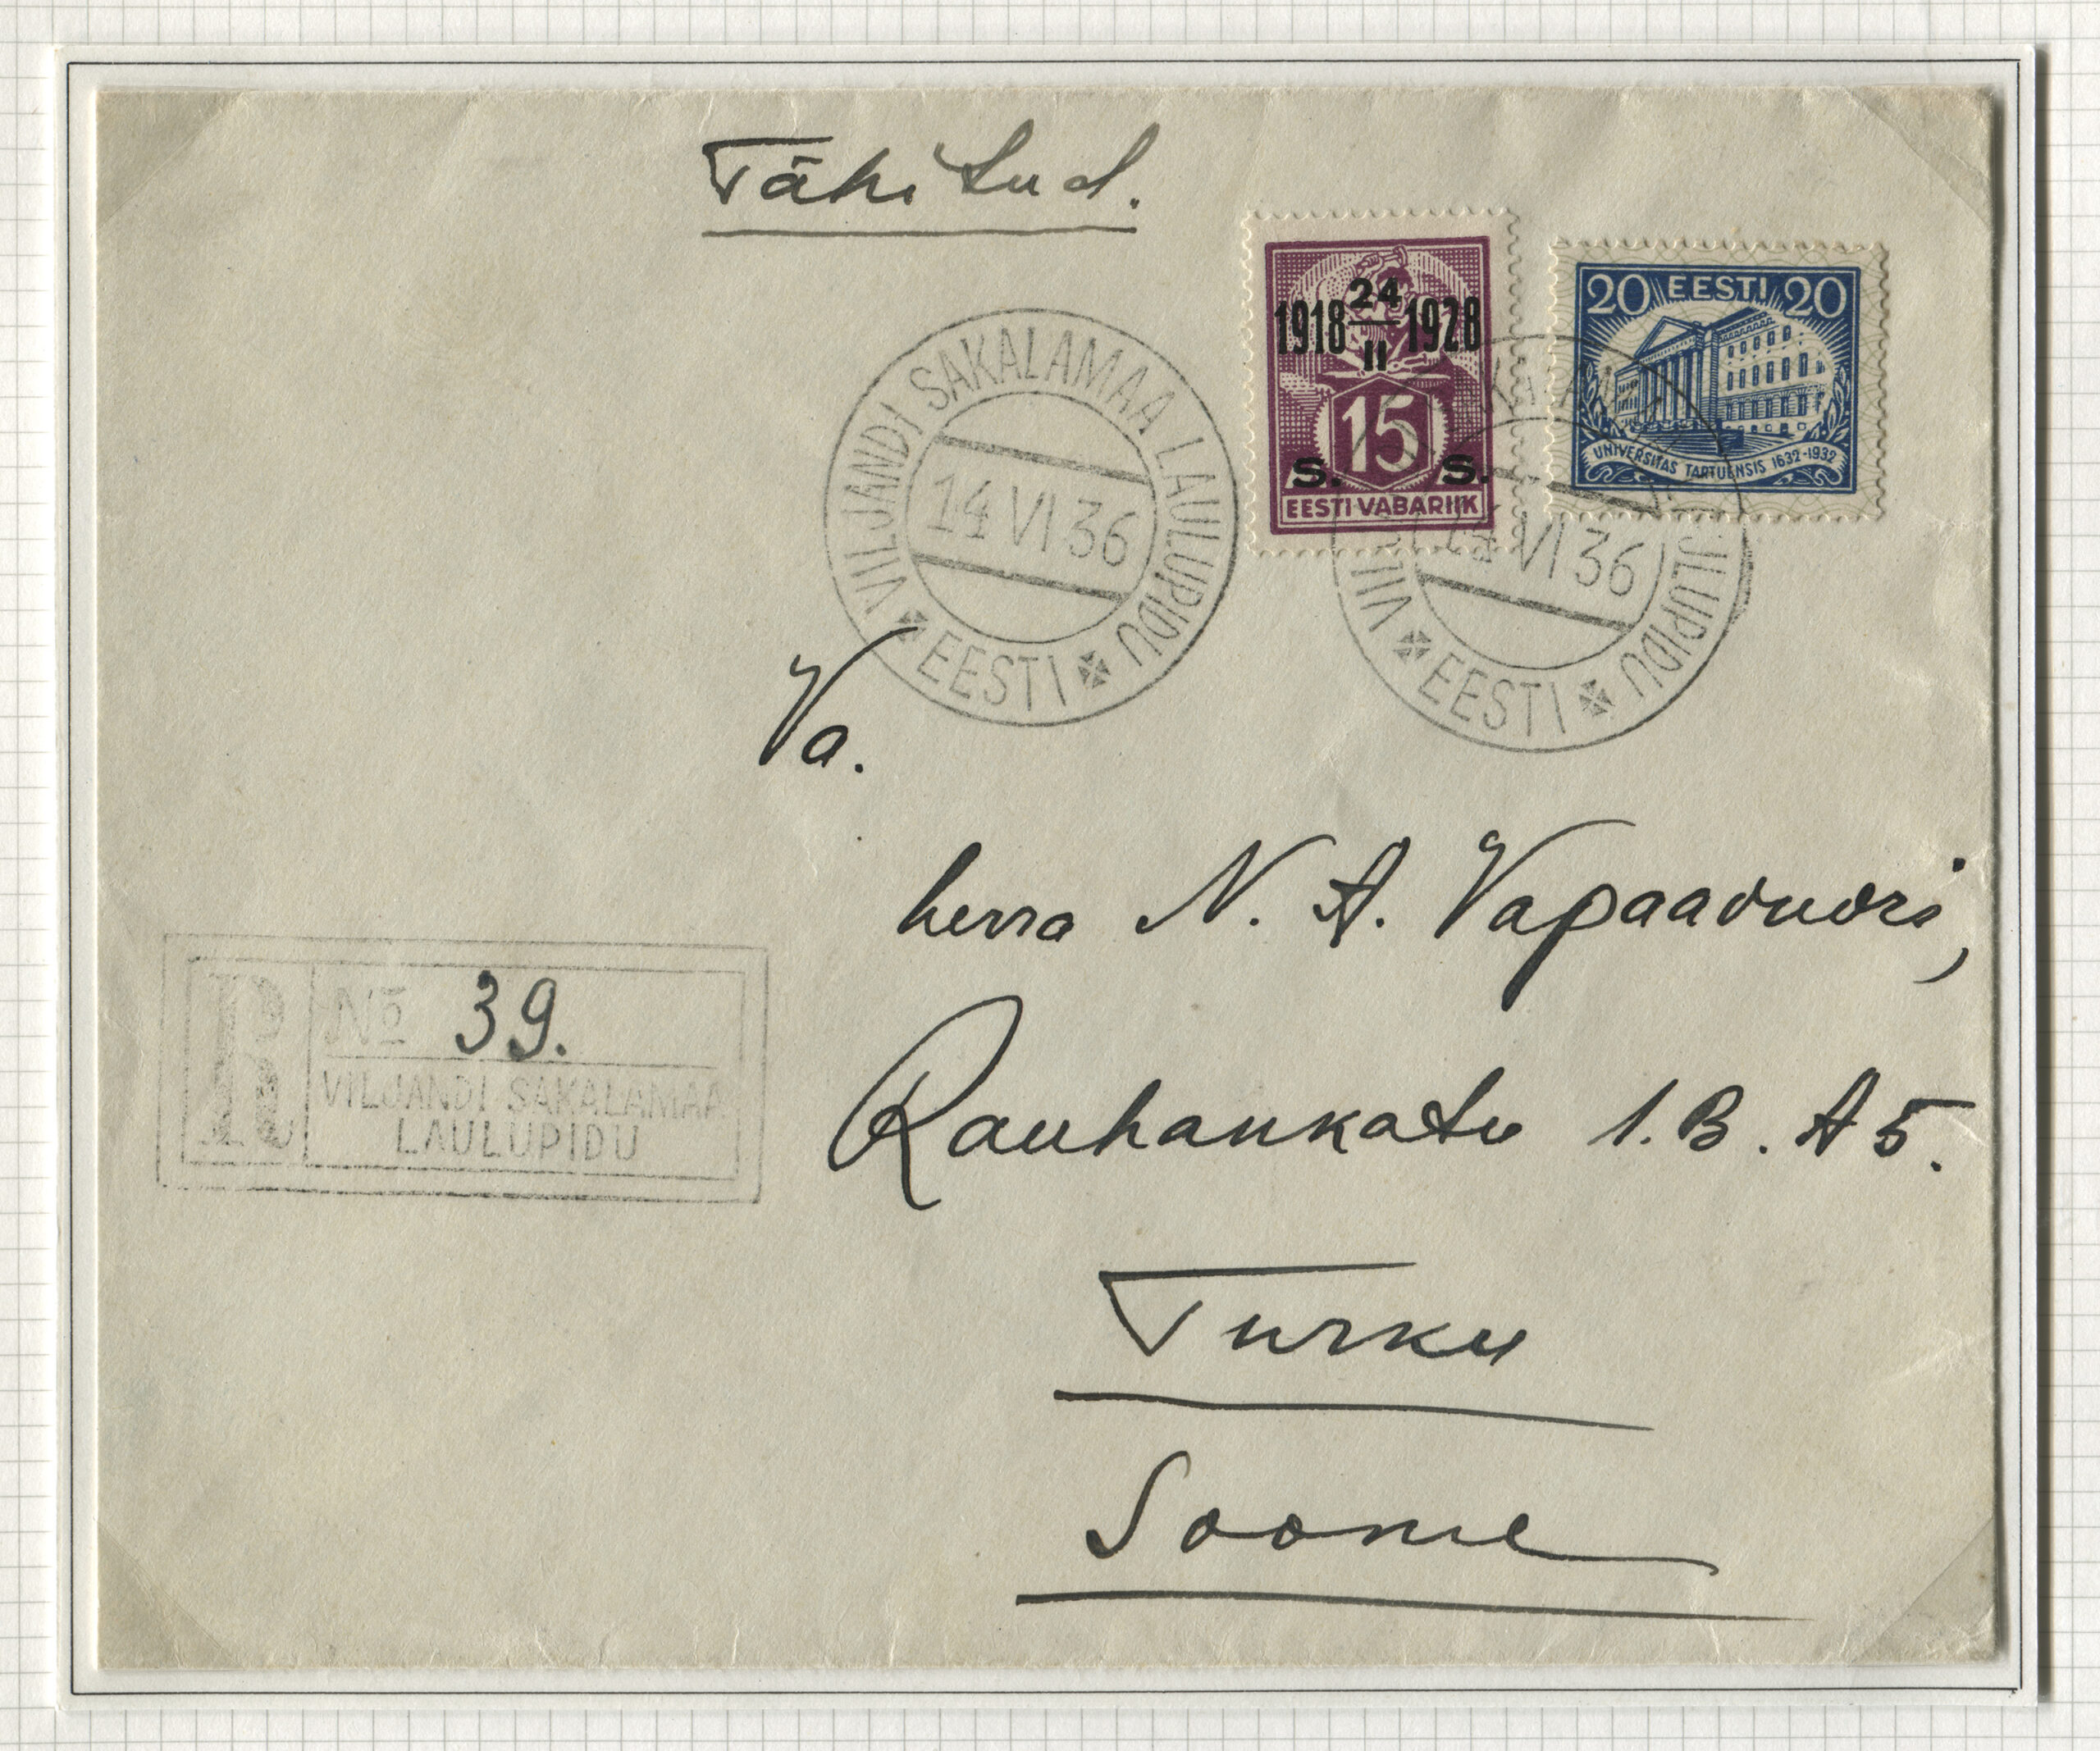 Tähitud.
1918 24 II 1928
15
S. S.
EESTI VABARIIK
20 EESTI 20
UNIVERSITAS TARTUENSIS 1632-1932
VILJANDI SAKALAMAA LAULUPIDU
14 VI 36
EESTI
VI 36
EESTI
Va.
herra N. A. Vapaavuori,
R № 39.
VILJANDI SAKALAMAA
LAULUPIDU
Rauhankatu 1. B. A 5.
Turku
Soome